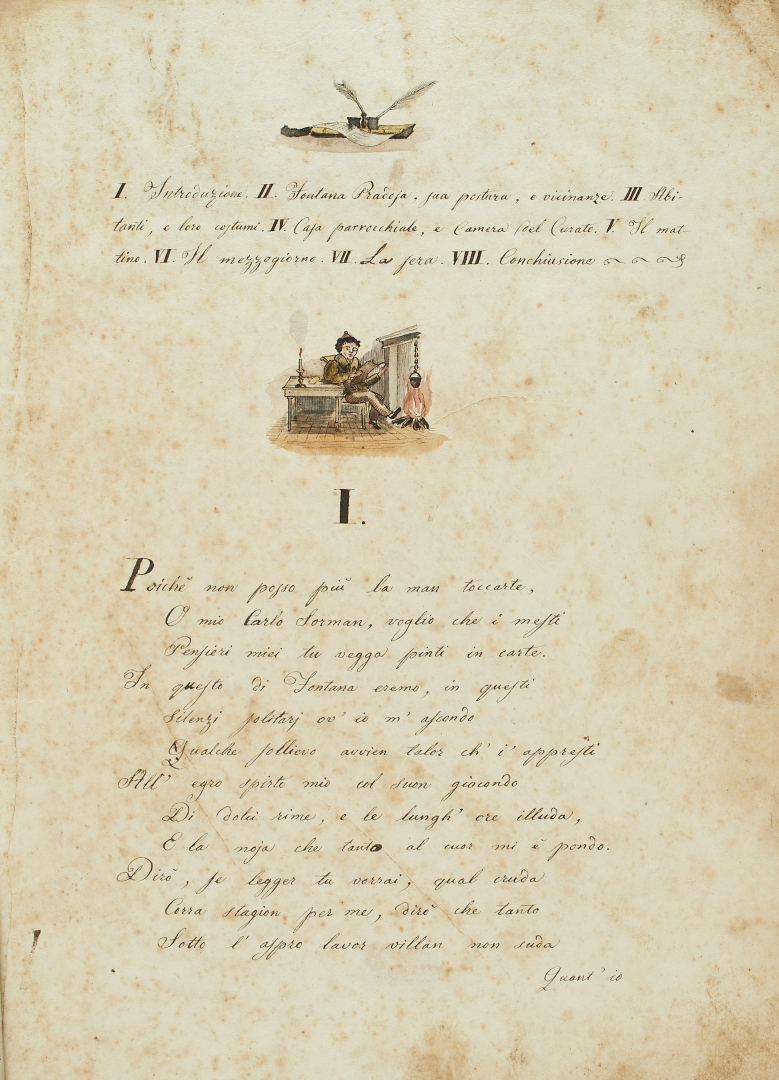 I. Introduzione. II. Fontana Pradosa, sua postura, e vicinanze. III Abi-
tanti, e loro costumi. IV. Casa parrocchiale, e Camera del Curato. V. Il mat-
tino. VI. Il mezzogiorno. VII. La sera. VIII. Conchiusione
I.
Poichè non posso più la man toccarte,
O mio Carlo Sorman, voglio che i mesti
Pensieri miei tu vegga pinti in carte.
In questo di Fontana eremo, in questi
Silenzi solitarj ov' io m' ascondo
Qualche sollievo avvien talor ch' i' appresti
All' egro spirto mio col suon giocondo
Di dolci rime, e le lungh' ore illuda,
E la noja che tanto al cuor mi è pondo.
Dirò, se legger tu vorrai, qual cruda
Corra stagion per me, dirò che tanto
Sotto l' aspro lavor villan non suda
Quant' io